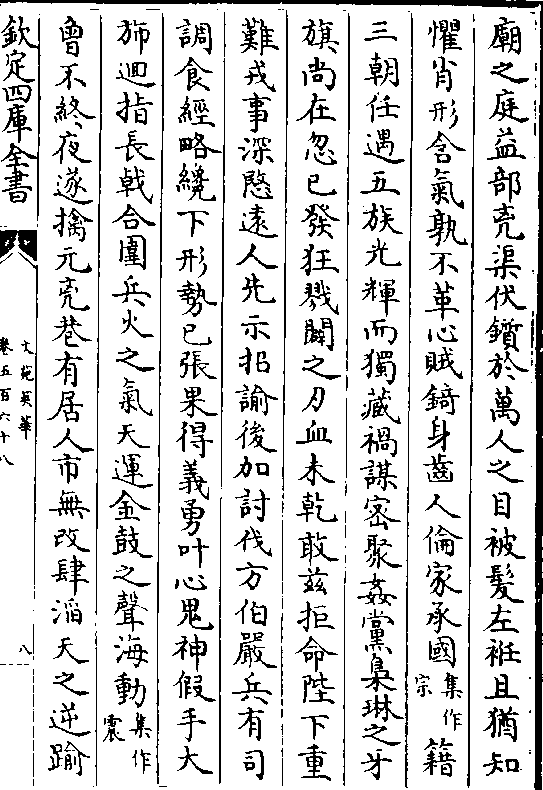 廟之庭益部兇渠伏鑕於萬人之目被髪左袵且猶知
懼肖形含氣孰不革心賊錡身齒人倫家承國集作宗籍
三朝任遇五族光輝而獨藏禍謀密聚姦黨梟琳之牙
旗尚在忽已發狂戮闢之刀血未乾敢兹拒命陛下重
難戎事深愍遠人先示招諭後加討伐方伯嚴兵有司
調食經略纔下形勢已張果得義勇叶心鬼神假手大
斾迴指長㦸合圍兵火之氣天運金鼓之聲海動集作震
曾不終夜遂擒元兇巷有居人市無改肆滔天之逆踰
欽定四庫全書
文苑英華
卷五百六十八
八